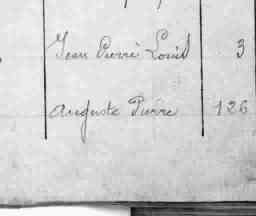 Jean Pierre Louis 3
Auguste Pierre 126